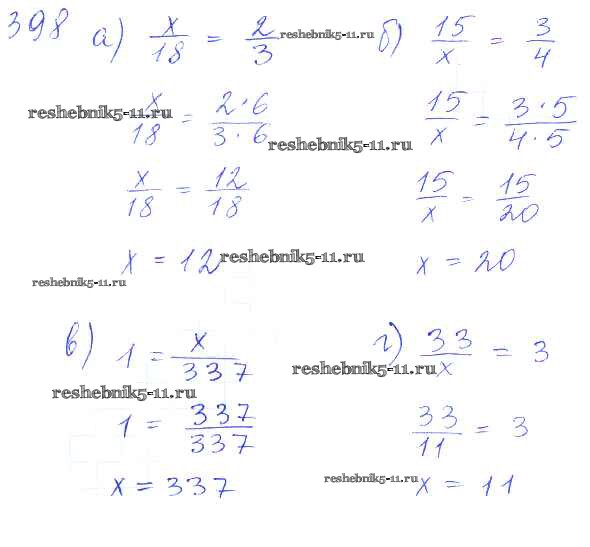 398 а) x/18 = 2/3 reshebnik5-11.ru б) 15/x = 3/4
reshebnik5-11.ru x/18 = 2·6/3·6 reshebnik5-11.ru 15/x = 3·5/4·5
x/18 = 12/18 15/x = 15/20
x = 12 reshebnik5-11.ru x = 20
reshebnik5-11.ru
в) 1 = x/337 г) 33/x = 3
reshebnik5-11.ru reshebnik5-11.ru
1 = 337/337 33/11 = 3
x = 337 reshebnik5-11.ru x = 11